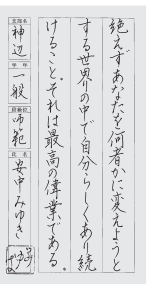 絶えずあなたを何者かに変えようと
する世界の中で自分らしくあり続
けること。それは最高の偉業である。
支部名
神辺
学年
一般
段級位
師範
氏名
安中みゆき